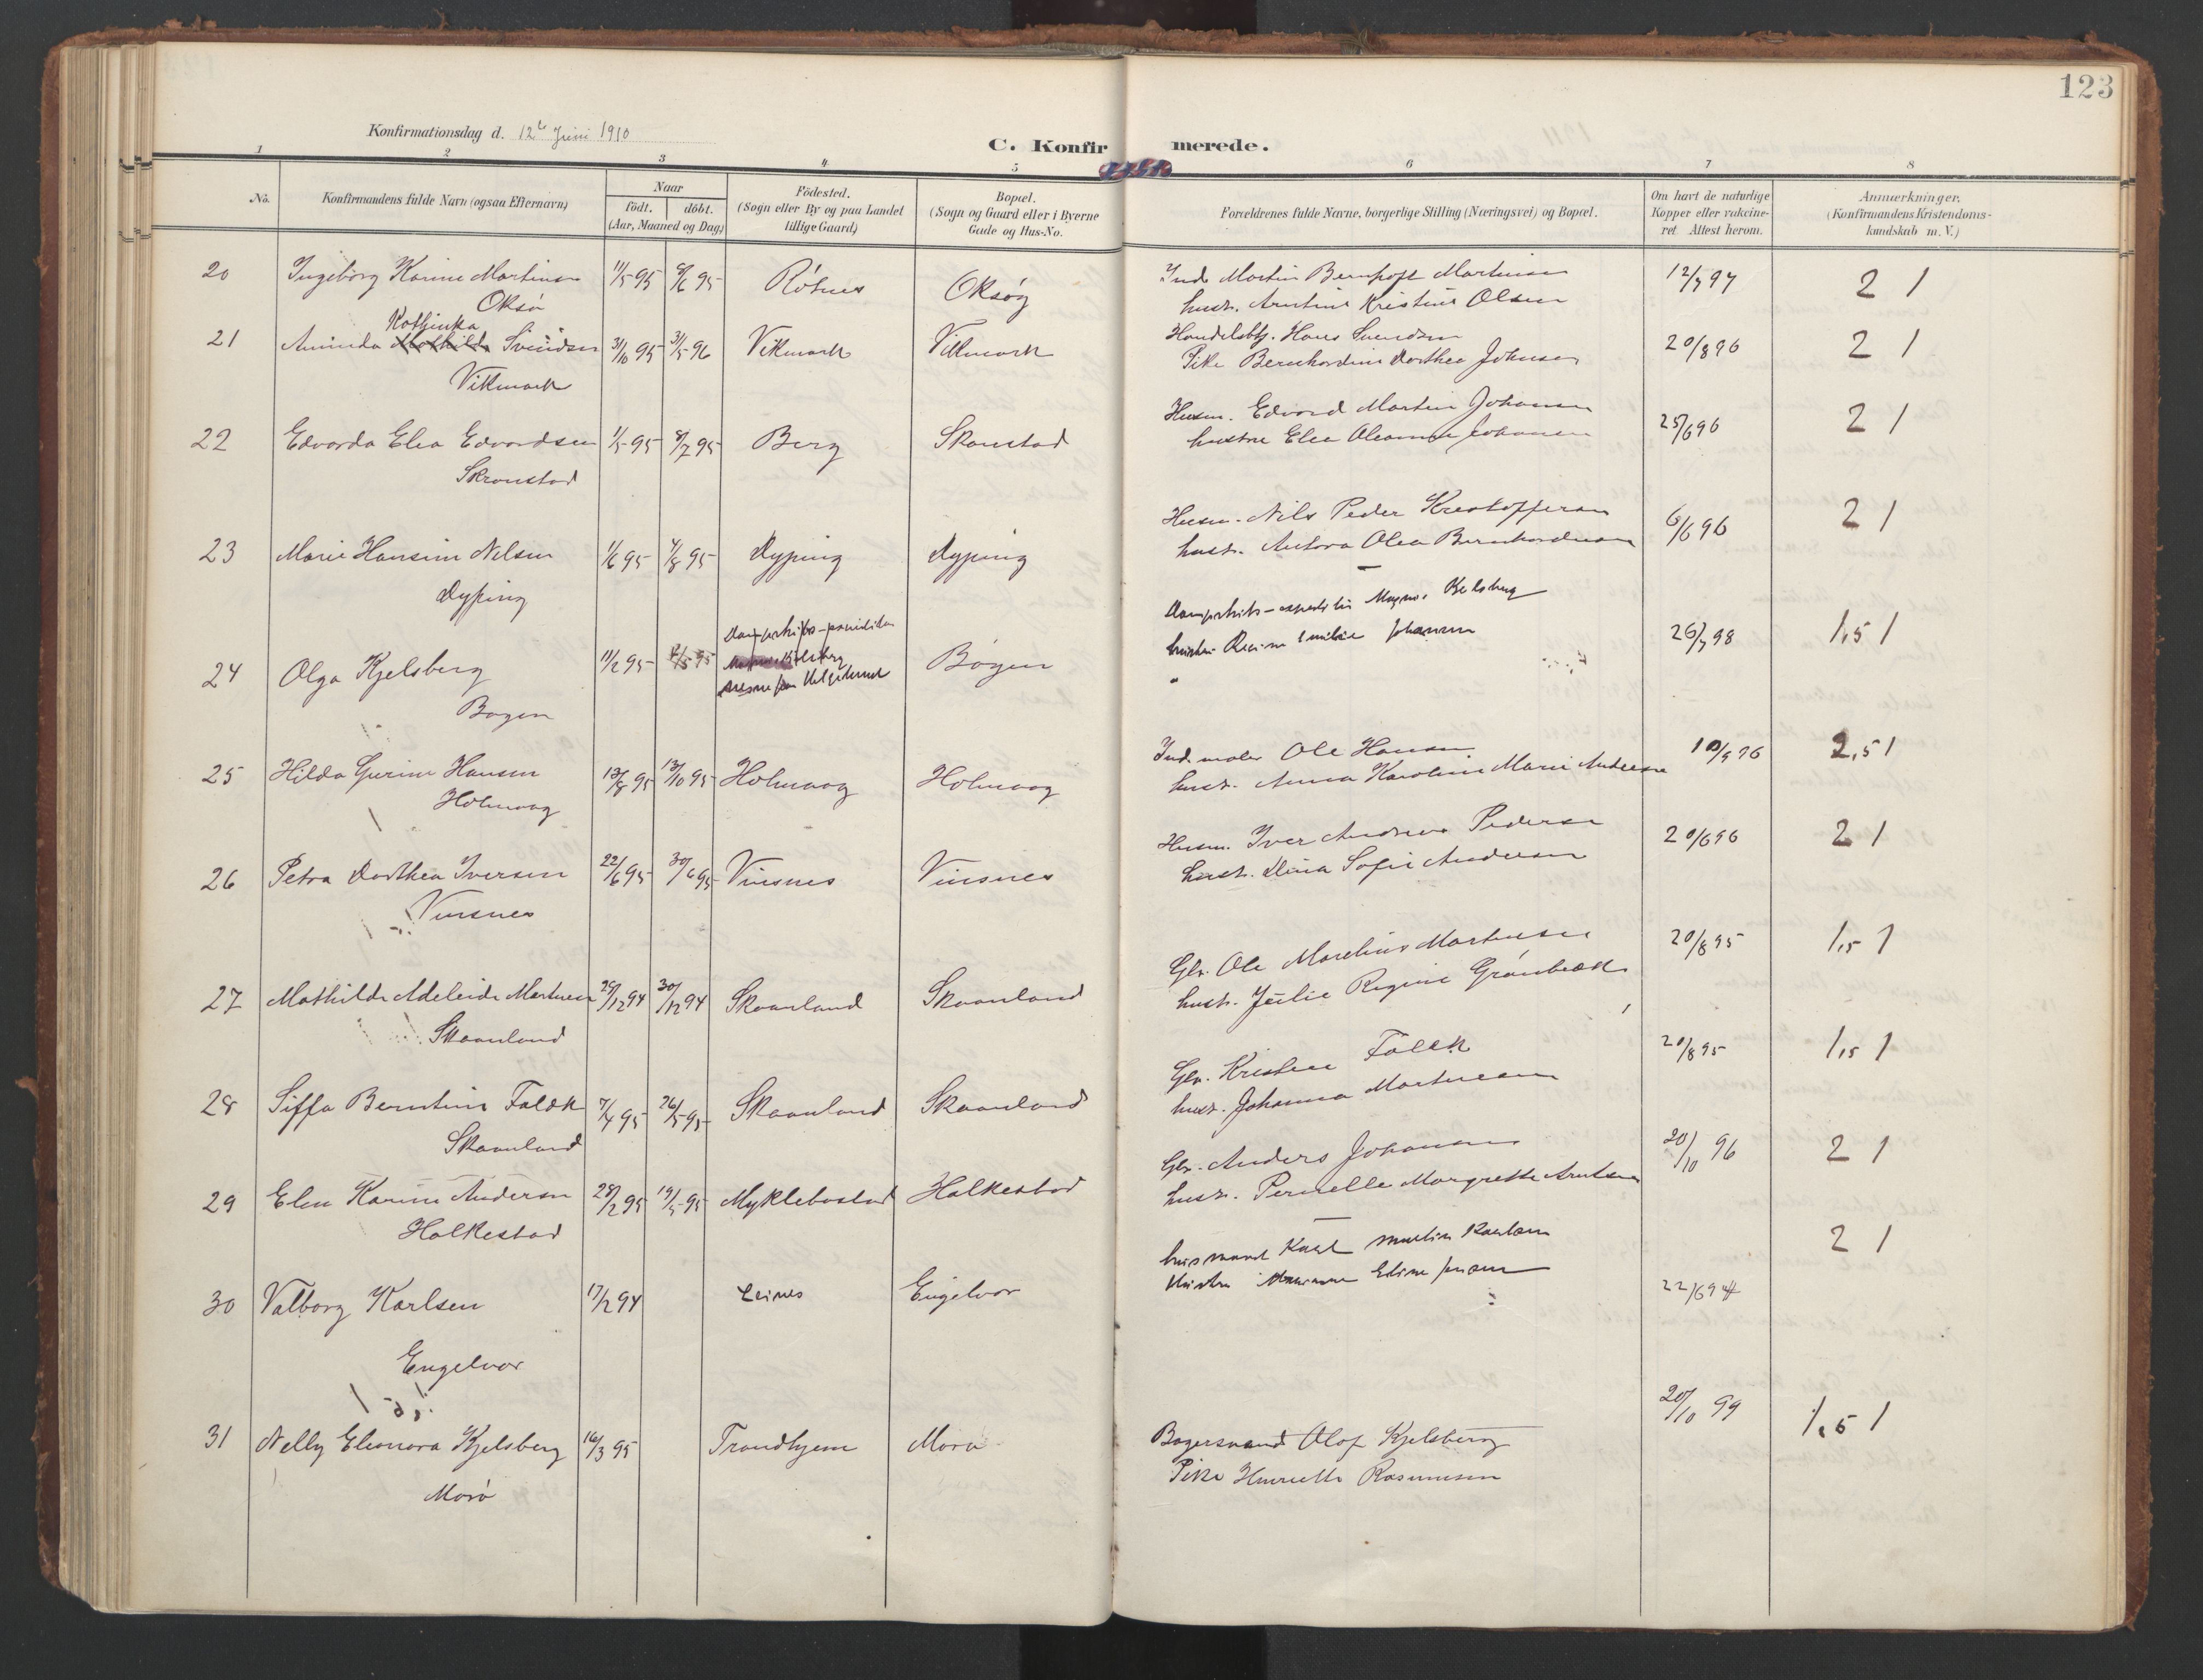 123
Konfirmationsdag d. 12te Juni 1910
C. Konfirmerede.
1 2 3 4 5 6 7 8
No.
Konfirmandens fulde Navn (ogsaa Efternavn)
Naar
födt. döbt.
(Aar, Maaned og Dag)
Födested.
(Sogn eller By og paa Landet
tillige Gaard)
Bopæl.
(Sogn og Gaard eller i Byerne
Gade og Hus-No.
Forældrenes fulde Navne, borgerlige Stilling (Næringsvei) og Bopæl.
Om havt de naturlige
Kopper eller vakcine-
ret. Attest herom.
Anmærkninger.
(Konfirmandens Kristendoms-
kundskab m. V.)
20 Ingeborg Karine Martinsen 11/5 95 8/6 95 Rötnes Oksøy Ind. Martin Bernhoft Martinsen 12/7 97 2 1
Oksø hust. Arntine Kristine Olsen
Kathinka
21 Aminda Mathilde Svendsen 31/10 95 31/5 96 Vikmark Vikmark Handelsbtj. Hans Svendsen 20/8 96 2 1
Vikmark Pike Bernhardine Dorthea Johnsen
22 Edvarda Elea Edvardsen 1/5 95 8/7 95 Berg Skonstad Husm. Edvard Martin Johansen 25/6 96 2 1
Skronstad hustru Elea Oleanna Johansen
23 Marie Hansine Nilsen 1/6 95 4/8 95 Dyping Dyping Husm. Nils Peder Kristoffersen 6/6 96 2 1
Dyping hust. Antora Olea Bernhardsen
24 Olga Kjelsberg 11/2 95 Bogen hustru Regine Emilie Johansen 26/7 98 1,5 1
Bogen
25 Hilda Gurine Hansen 13/8 95 13/10 95 Holmaag Holmaag Ind. maler Ole Hansen 10/9 96 2,5 1
Holmaag hust. Anna Karoline Marie Andersen
26 Petra Dorthea Iversen 22/6 95 30/6 95 Vinsnes Vinsnes Husm. Iver Andreas Pedersen 20/6 96 2 1
Vinsnes hust. Dina Sofie Andersen
27 Mathilde Adeleide Martinsen 29/12 94 30/12 94 Skaanland Skaanland Gbr. Ole Marelius Martinsen 20/8 95 1,5 1
Skaanland hust. Julie Regine Grønbæk
28 Siffa Berntine Falck 7/4 95 26/5 95 Skaanland Skaanland Gbr. Kristian Falck 20/8 95 1,5 1
Skaanland hust. Johanna Martinsen
29 Elen Karine Andersen 28/2 95 19/5 95 Myklebostad Holkestad Gbr. Anders Johansen 20/10 96 2 1
Holkestad hust. Pernelle Margrethe Arntsen
30 Valborg Karlsen 17/2 94 Leines Engelvær husmand Karl Martin Karlsen 22/6 94 2 1
Engelvær Hustru Marianne Eline Jensen
31 Nelly Eleonora Kjelsberg 16/3 95 Trondhjem Morø Bogersvend Olof Kjelsberg 20/10 99 1,5 1
Morø Pike Henriette Rasmussen